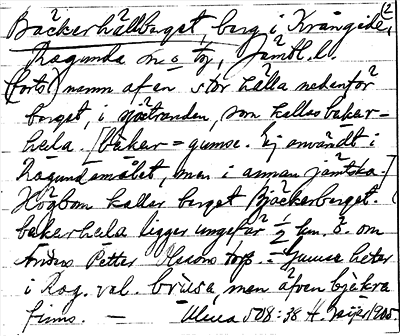 (2
Bäckerhällberget, berg i Krångede,
Ragunda sn o ty, Jämtl. l.
(forts) namn af en stor hälla nedanför
berget, i sjöstranden, som kallas bäker-
hela. [bäker = gumse. Ej användt i
Ragundamålet, men i annan jämtska.]
Högbom kallar berget Bjäckerberget.
bäkerhela ligger ungefär 1/2 km. ö. om
Anders Petter Olssons torp. - Gumse heter
i Rag. val. bräse, men äfven bjäkra
finns. — Ulma 508:38 H. 1905.